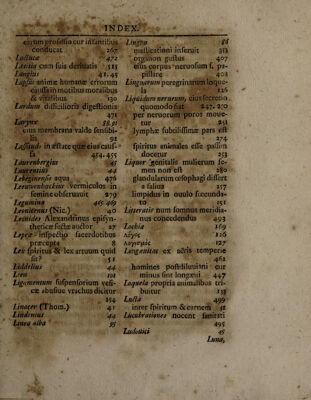 INDEX.
earum profusio cur infantibus
conducat 267
Lactuca 472
Lactis cum suis deritatis 515
Langius 41. 45
Lapsus animæ humanæ errorum
causa in motibus moralibus
& vitalibus 130
Lardum difficilioris digestionis
471
Larynx 88.91
eius membrana valde sensibi-
lis 92
Lassitudo in æstate quæ eius caus-
sa 454. 455
Laurenbergius 45
Laurentius 44
Lebeginensis aqua 476
Leeuwenhoekius vermiculos in
semine observavit 279
Legumina 465. 469
Leonicenus (Nic.) 40
Leonides Alexandrinus episyn-
theticæ sectæ auctor 27
Lepræ inspectio sacerdotibus
præcepta 8
Lex spiritus & lex artuum quid
sit? 51
Liddelius 44
Lien 101
Ligamentum suspensorium vesi-
cæ abusive vrachus dicitur
254
Linacer (Thom.) 41
Lindenius 44
Linea alba 95
Lingua 86
masticationi inseruit 313
organon gustus 407
eius corpus neruosum s. pa-
pillare 402
Linguarum peregrinarum loque-
la 125
Liquidum neruorum, eius secretio
quomodo fiat 247. 270
per neruorum poros moue-
tur 251
lymphæ subtilissimæ pars est
274
spiritus animales esse passim
docetur 253
Liquor genitalis mulierum se-
men non est 280
glandularum œsophagi differt
a saliua 257
limpidus in ouulo fœcunda-
to 151
Litteratis num somnus meridia-
nus concedendus 493
Lochia 169
λόγος 126
λογισμὸς 127
Longæuitas ex aëris temperie
462
homines postdiluuiani cur
minus sint longæui 447
Loquela propria animalibus tri-
buitur 125
Lucta 499
inter spiritum & carnem 52
Lucubrationes nocent sanitati
495
Ludouici 45
Luna,